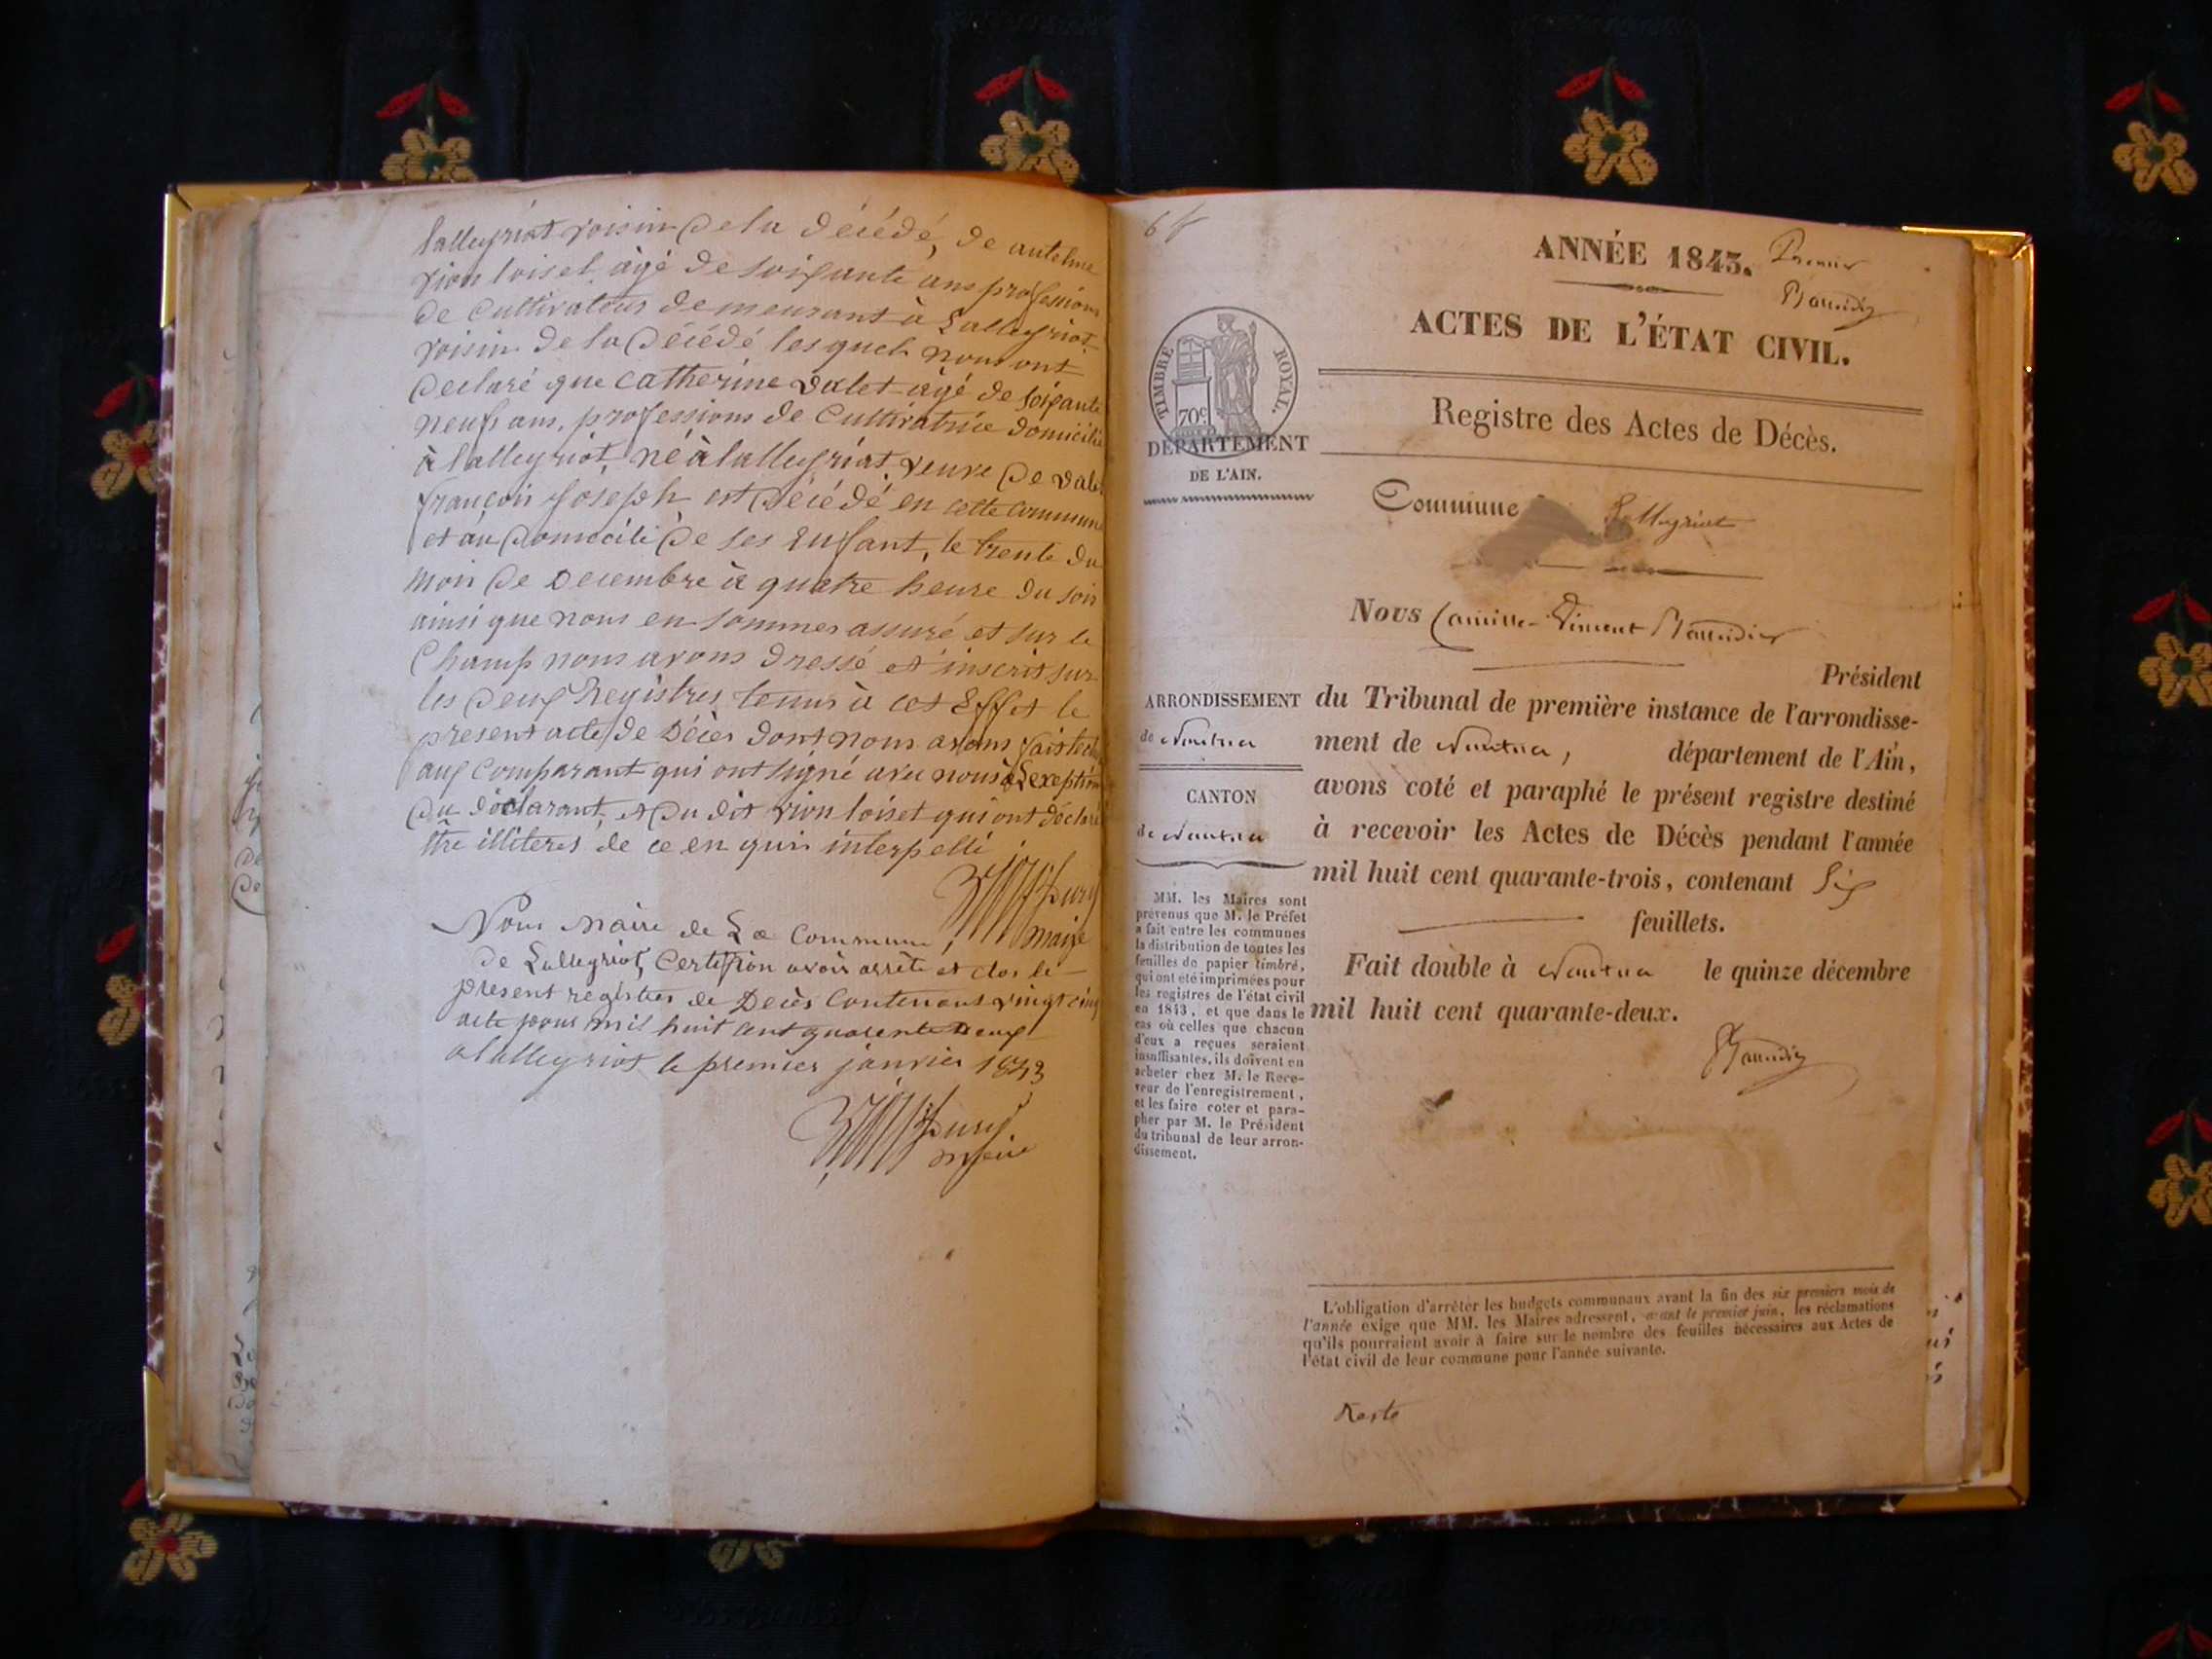 lalleyriat voisin de la décédé, de antelme
vion loiset âgé de soixante ans professions
de cultivateur demeurant à Lalleyriat
voisin de la décédé lesquels nous ont
declaré que catherine valet âgé de soixante
neuf ans, professions de Cultivatrice domicilié
à lalleyriat, né à lalleyriat, veuve de valet
françois joseph est décédé en cette commune
et au domicile de ses Enfant, le trente du
mois de Decembre à quatre heure du soir
ainsi que nous en sommes assuré et sur le
Champ nous avons dressé et inscrit sur
les deux Registres tenus à cet Effet le
present acte de Décès dont nous avons fait
aux Comparant qui ont signé avec nous à Lexeption
du déclarant et du dit vion loiset qui ont déclaré
être illiterés de ce en quis interpellé
maire
Nous Maire de La Commune
de Lalleyriat, Certifion avoir arrêté et clos le
present registres de Décès Contenant vingt cinq
acte pour mil huit cent quarente Deux
a lalleyriat le premier janvier 1843
maire
ANNÉE 1843. Premier
Baudin
ACTES DE L'ÉTAT CIVIL.
Registre des Actes de Décès.
TIMBRE ROYAL.
70c
DÉPARTEMENT
DE L'AIN.
Commune Lalleyriat
Nous Camille-Vincent
Président
ARRONDISSEMENT
de Nantua
CANTON
de Nantua
du Tribunal de première instance de l'arrondisse-
ment de Nantua, département de l'Ain,
avons coté et paraphé le présent registre destiné
à recevoir les Actes de Décès pendant l'année
mil huit cent quarante-trois, contenant Six
feuillets.
Fait double à Nantua le quinze décembre
mil huit cent quarante-deux.
MM. les Maires sont
prévenus que M. le Préfet
a fait entre les communes
la distribution de toutes les
feuilles de papier timbré,
qui ont été imprimées pour
les registres de l'état civil
en 1843, et que dans le
cas où celles que chacun
d'eux a reçues seraient
insuffisantes, ils doivent en
acheter chez M. le Rece-
veur de l'enregistrement,
et les faire coter et para-
pher par M. le Président
du tribunal de leur arron-
dissement.
L'obligation d'arrêter les budgets communaux avant la fin des six premiers mois de
l'année exige que MM. les Maires adressent, avant le premier juin, les réclamations
qu'ils pourraient avoir à faire sur le nombre des feuilles nécessaires aux Actes de
l'état civil de leur commune pour l'année suivante.